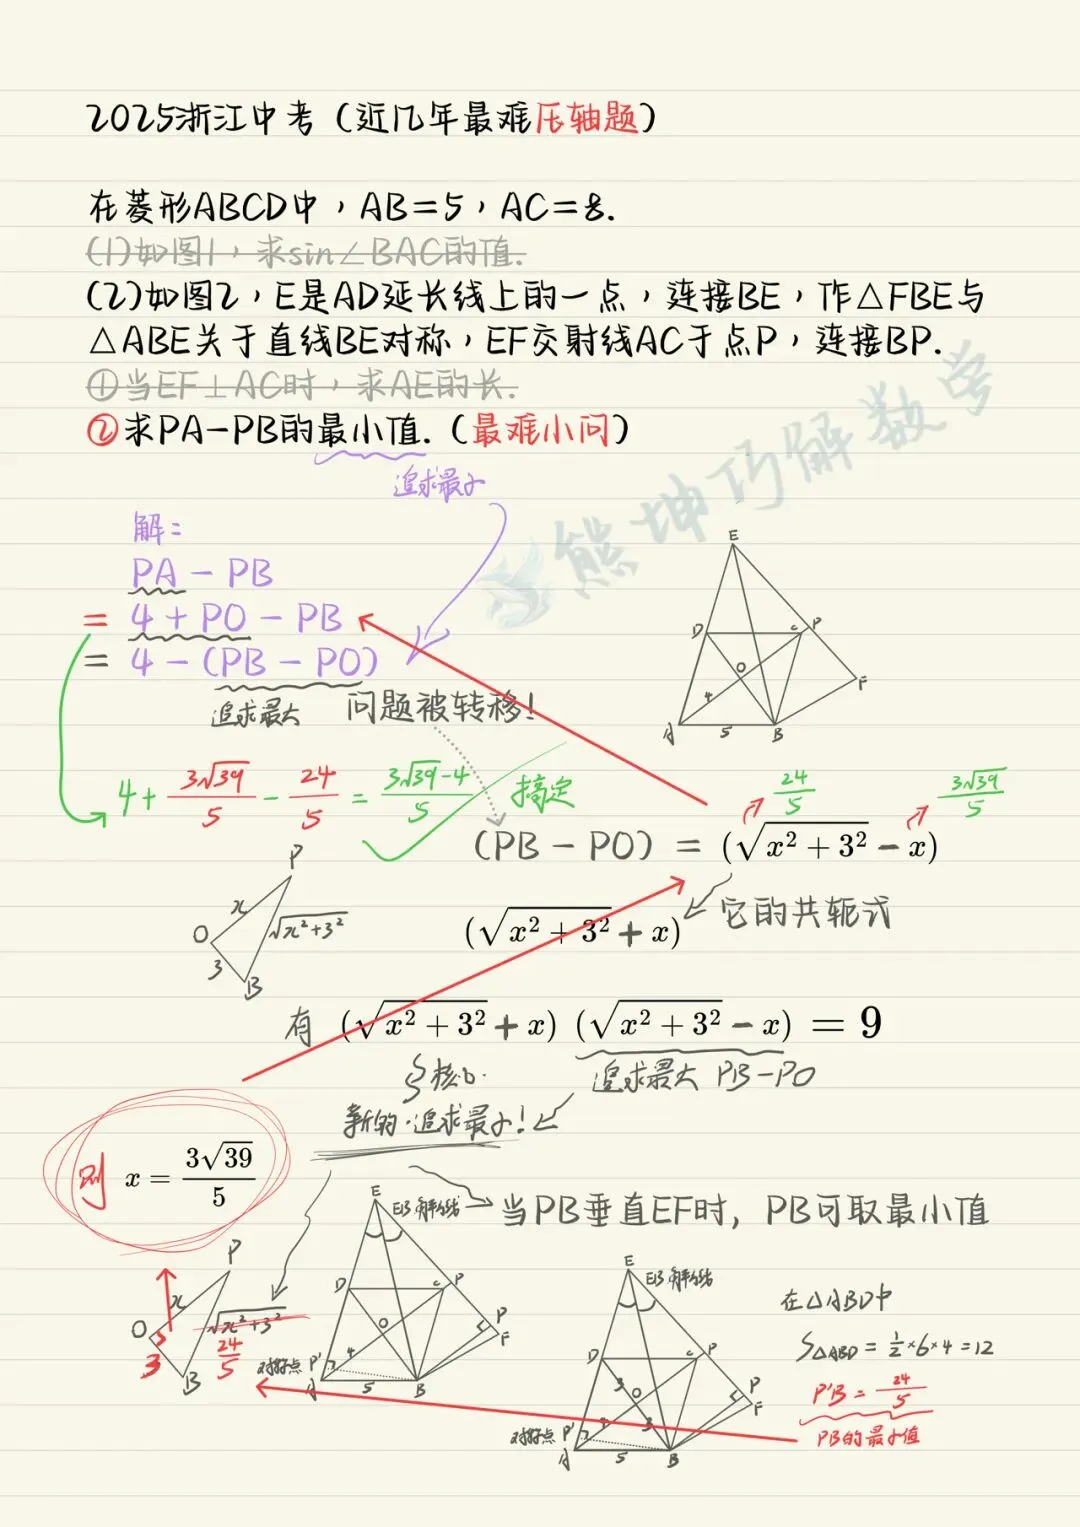 2025浙江中考（近几年最难压轴题）
在菱形ABCD中，AB=5，AC=8.
(1)如图1，求sin∠BAC的值.
(2)如图2，E是AD延长线上的一点，连接BE，作△FBE与
△ABE关于直线BE对称，EF交射线AC于点P，连接BP.
①当EF⊥AC时，求AE的长.
②求PA-PB的最小值.（最难小问）
追求最小
熊坤巧解数学
解：
PA - PB
= 4 + PO - PB
= 4 - (PB - PO)
追求最大 问题被转移！
E
D C P
O
4
F
A 5 B
4 + 3√39/5 - 24/5 = (3√39-4)/5 搞定
24/5 3√39/5
(PB - PO) = (√(x²+3²) - x)
P
x
O √(x²+3²)
3
B
(√(x²+3²) + x) 它的共轭式
有 (√(x²+3²) + x) (√(x²+3²) - x) = 9
核心.
追求最大 PB-PO
新的·追求最小！
则 x = 3√39/5
当PB垂直EF时，PB可取最小值
P
x
O √(x²+3²)
5
3 24/5
B
E
EB
D C P
O
4 P
F
P'
A 5 B
E
EB
D C P
3 O
4 3 P
F
P'
A 5 B
在△ABD中
S△ABD = 1/2×6×4=12
P'B = 24/5
PB的最小值